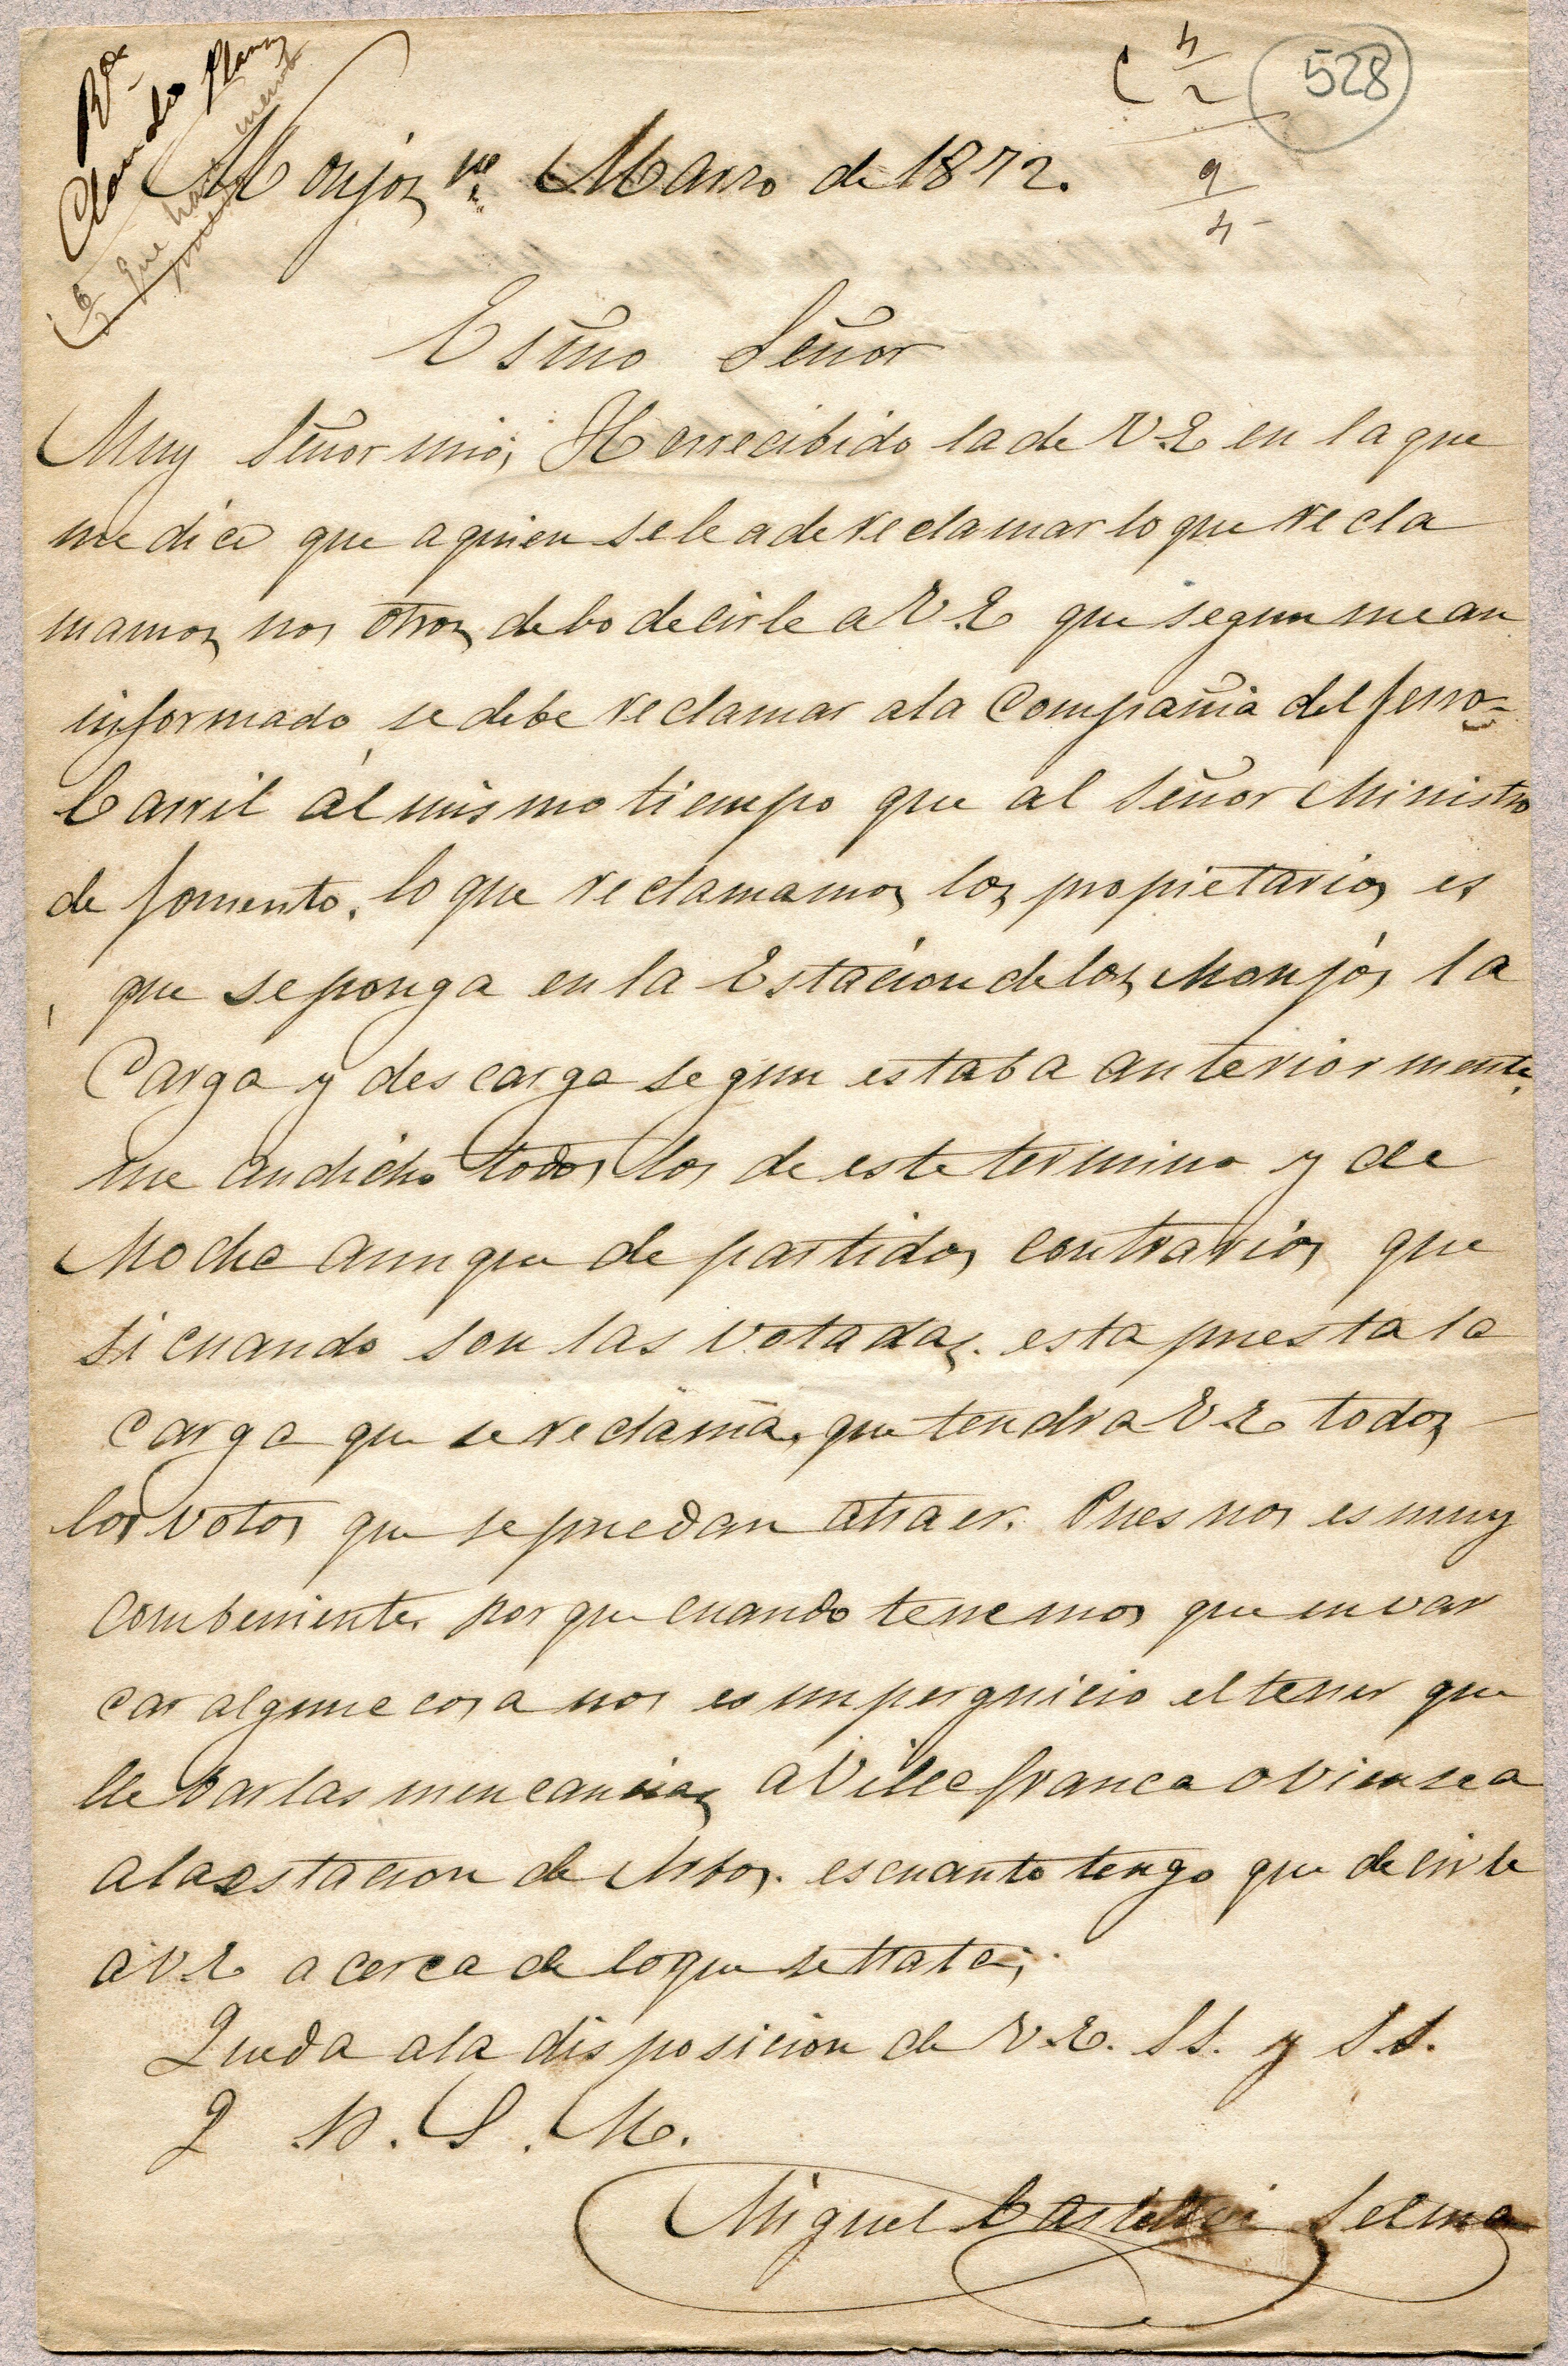 528
Rx
Claudio Planas
que hará
Monjos 1º Marzo de 1872.
Esmo Señor
Muy Señor mio; He rrecibido la de V.E en la que
me dice que a quien se le a de reclamar lo que recla
mamos nos otros debo decirle a V.E que segun me an
informado se debe reclamar a la Compañia del ferro-
Carril al mismo tiempo que al Señor Ministro
de fomento. lo que reclamamos los propietarios es
que se ponga en la Estacion de los Monjós la
Carga y descarga segun estaba anteriormente.
me an dicho todos los de este termino y de
Moche aunque de partidos contrarios que
si cuando son las votadas. esta puesta la
carga que se reclama, que tendra V.E todos
los votos que se puedan atraer. Pues nos es muy
combeniente porque cuando tenemos que envar
car alguna cosa nos es un perguicio el tener que
llebar las mencancias a Villafranca o vien sea
a la estacion de Arbos. es cuanto tengo que decirle
a V.E a cerca de lo que se trata;
Queda a la disposicion de V.E. SS. y S.S.
Q B. S. M.
Miguel Castellvi Selma